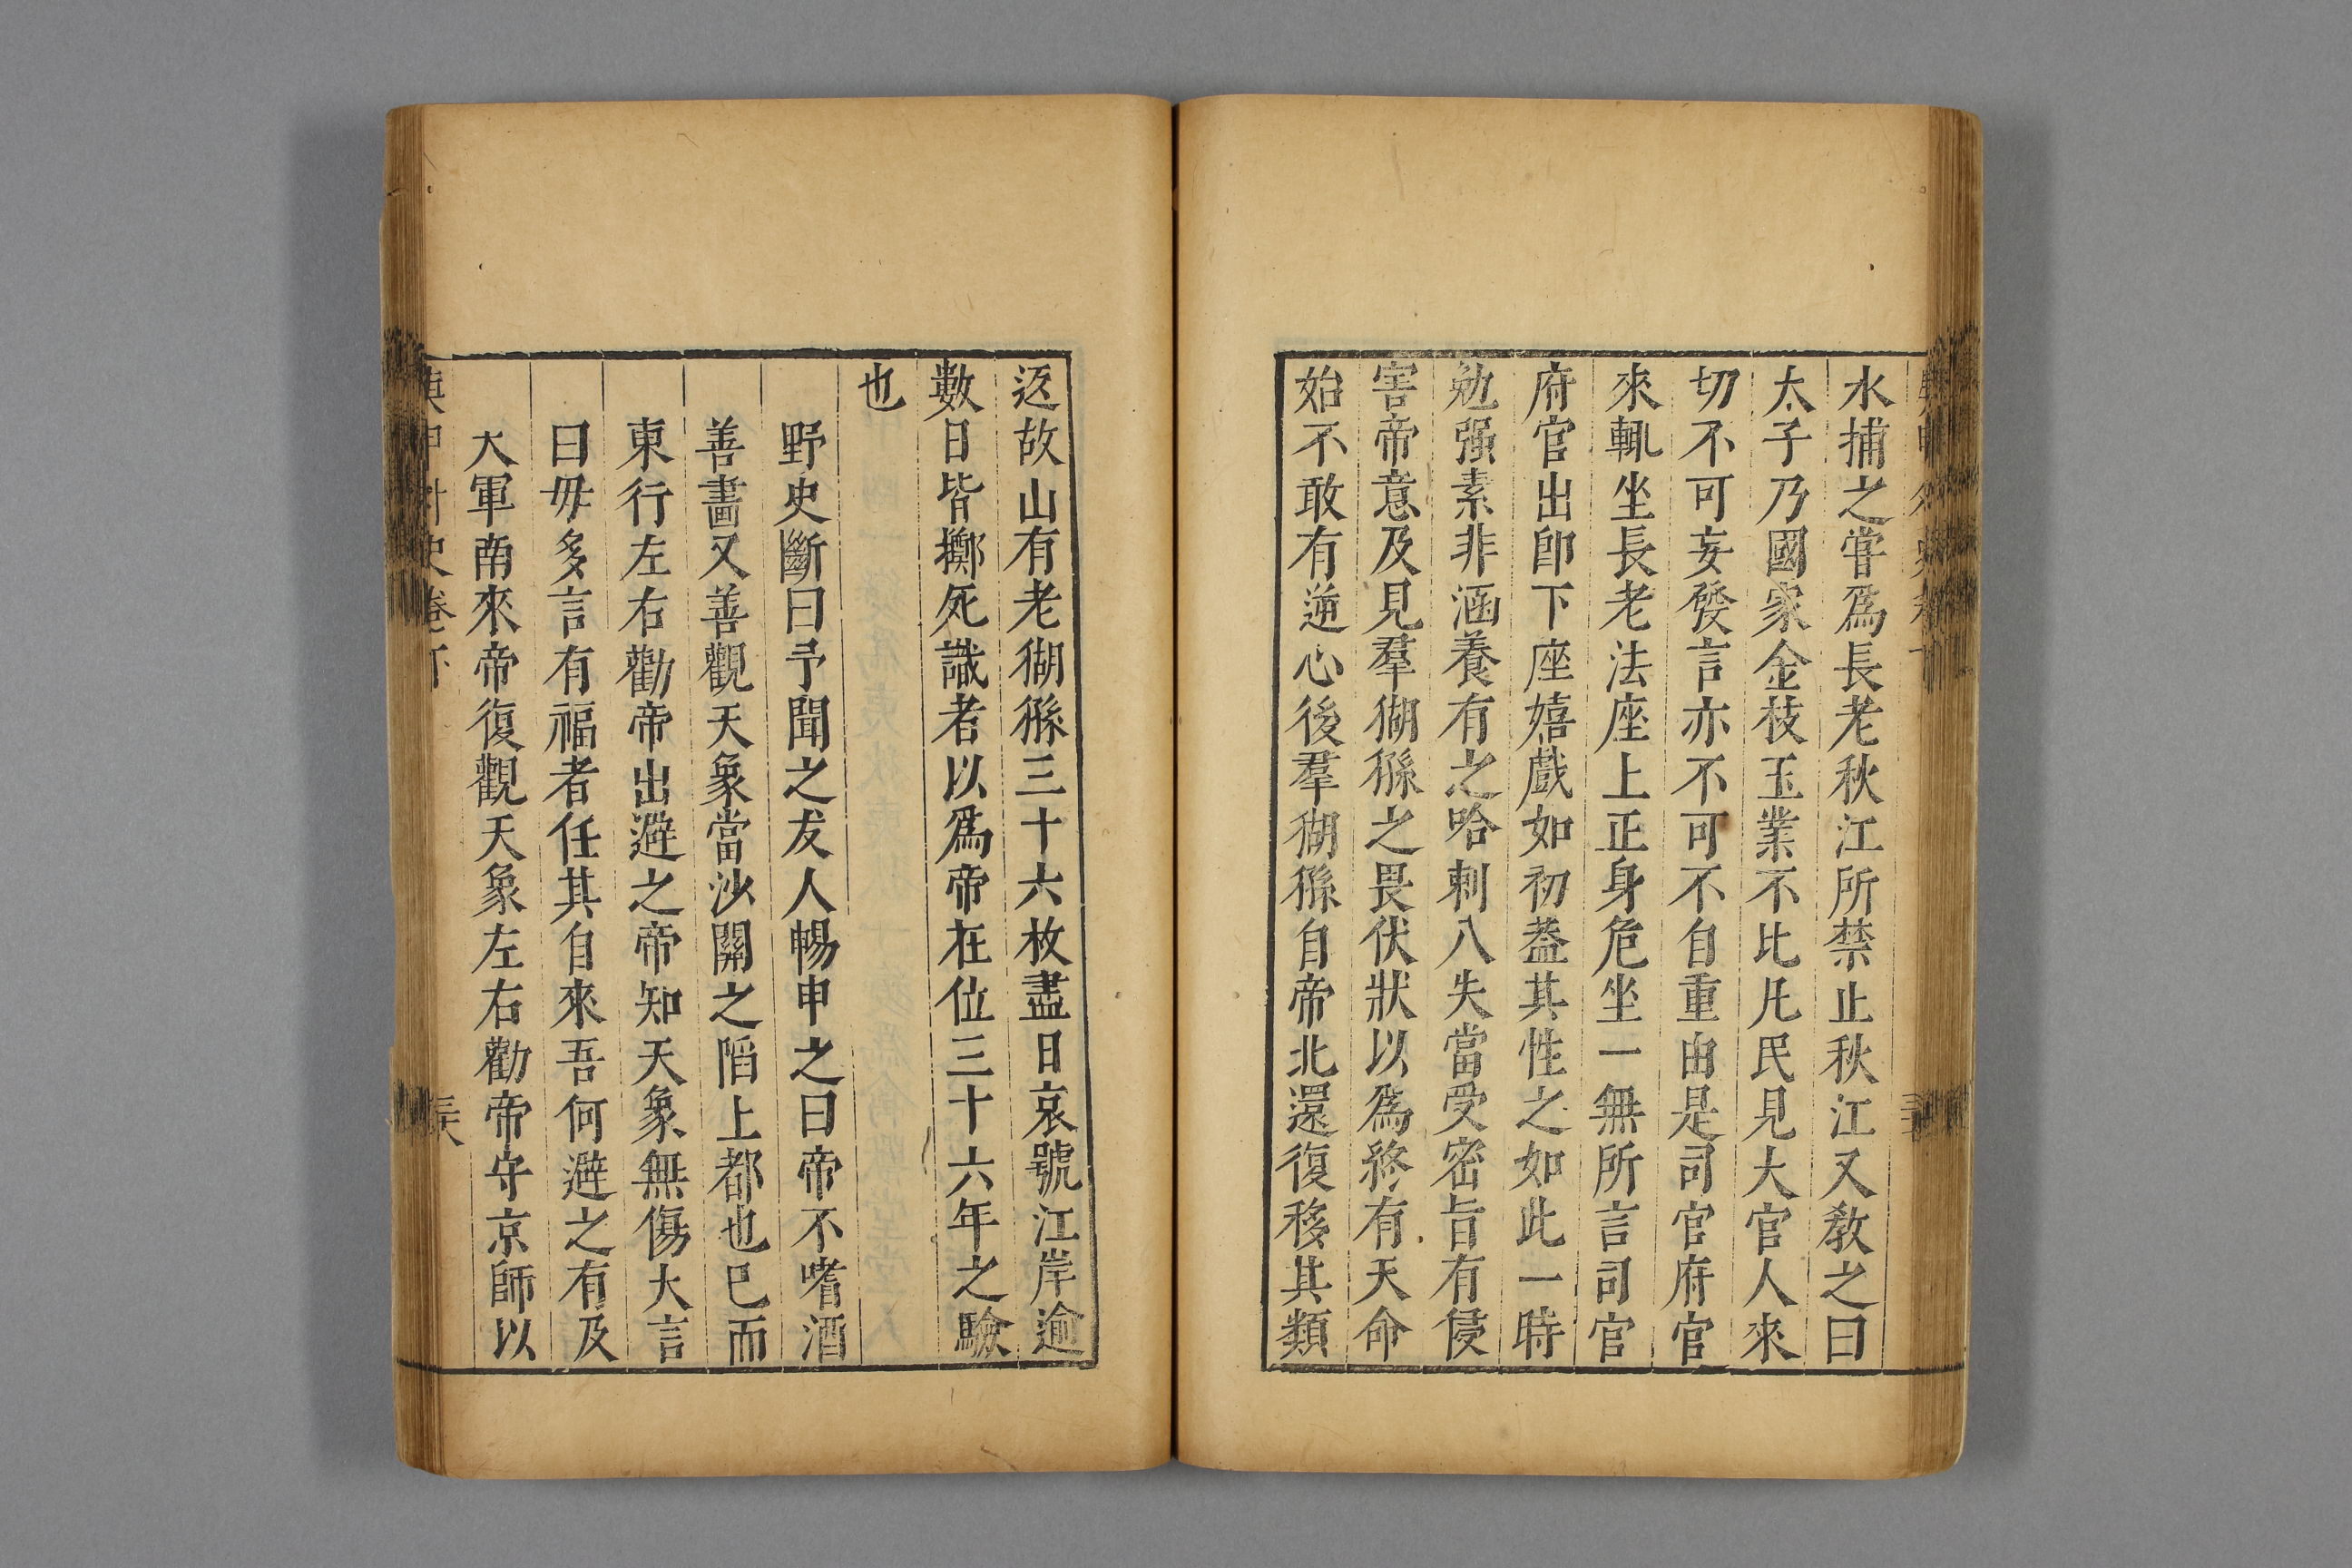 水捕之嘗爲長老秋江所禁止秋江又敎之曰
太子乃國家金枝玉業不比凡民見大官人來
切不可妄發言亦不可不自重由是司官府官
來輒坐長老法座上正身危坐一無所言司官
府官出卽下座嬉戲如初葢其性之如此一時
勉强素非涵養有之哈剌八失當受密旨有侵
害帝意及見羣猢猻之畏伏狀以爲終有天命
始不敢有逆心後羣猢猻自帝北還復移其類
返故山有老猢猻三十六枚盡日哀號江岸逾
數日皆擲死識者以爲帝在位三十六年之驗
也
野史斷曰予聞之友人暢申之曰帝不嗜酒
善畵又善觀天象當沙關之陷上都也已而
東行左右勸帝出避之帝知天象無傷大言
曰毋多言有福者任其自來吾何避之有及
大軍南來帝復觀天象左右勸帝守京師以
庚申外史卷下
三六